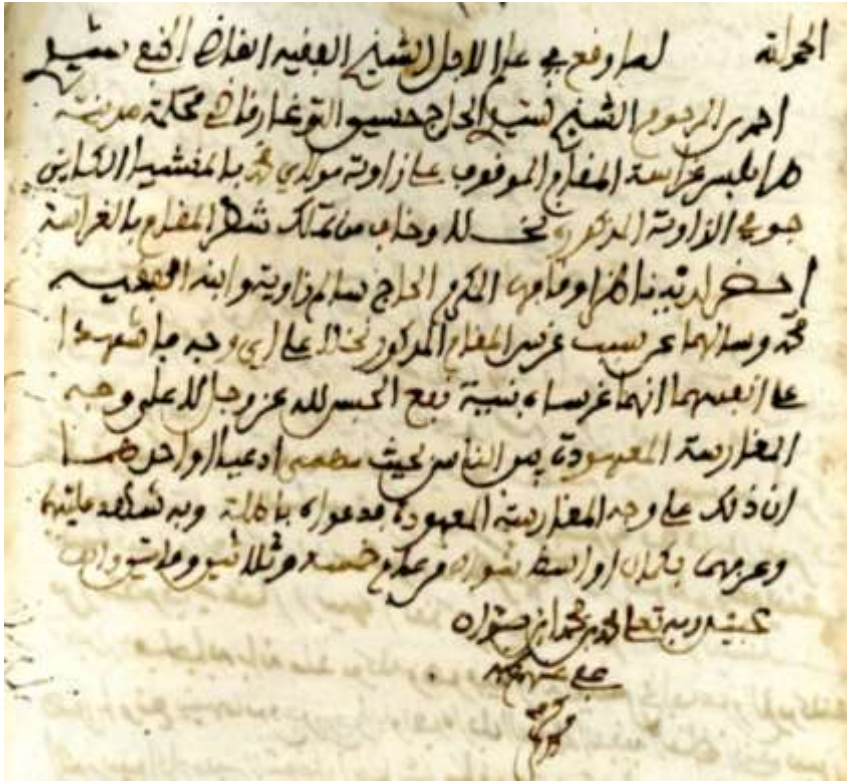 الحمد لله لما وقع في علم الاجل الشيخ الفقيه القاضي الحنفي سيدي
احمد بن المرحوم الشيخ سيدي الحاج حسين التوغار قاضي محكمة مدينة
طرابلس غراسة المقام الموقوف على زاوية مولاي محمد بالمنشية الكاين
جوفي الزاوية المذكورة نخلا وخاف من تملك شطر المقام بالغراسة
احضر لديه ناظر اوقافها المكرم الحاج سالم زاوية وابنه الفقيه
محمد وسالهما عن سبب غرس المقام المذكور نخلا على اي وجه فاشهدا
على انفسهما انهما غرساه بنية نفع الحبس لله عز وجل لا على وجه
المغارسة المعهودة بين الناس بحيث ادعيا او احدهما
ان ذلك على وجه المغارسة المعهودة فدعواه باطلة وبه شهد عليهما
وعرفهما بكمال اواسط شوال من عام خمسة وثلاثين ومايتين والف
عبيد ربه تعالى محمد بن
على عنهم